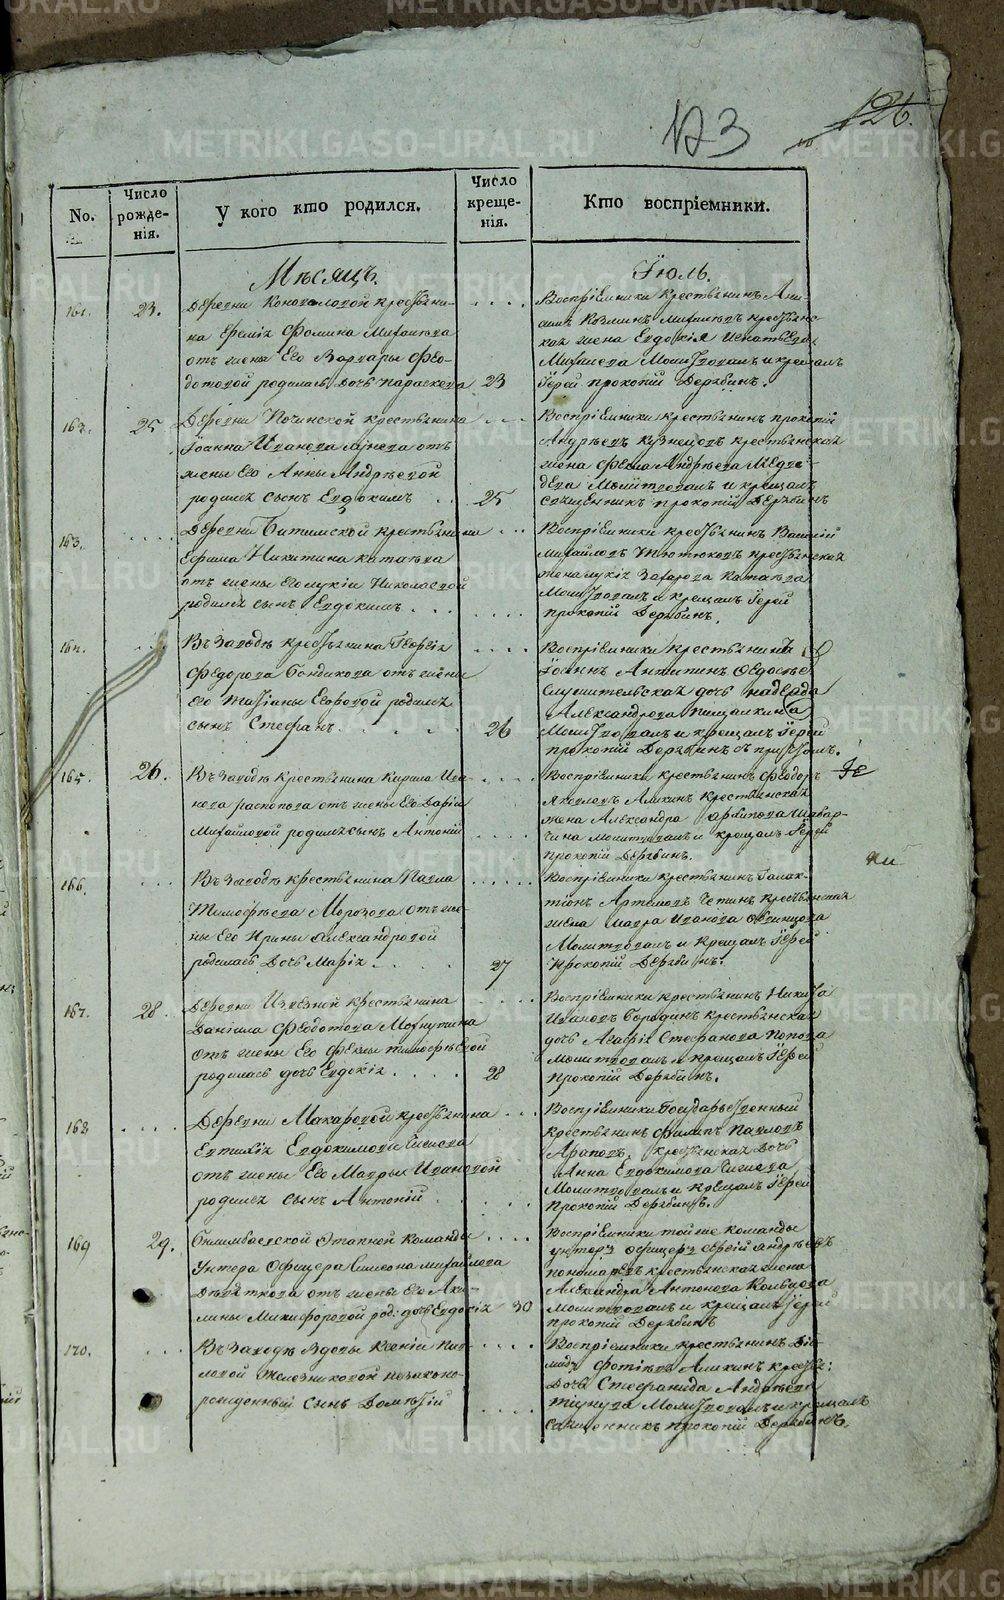 123
126.
No.
Число рожде- нія.
У кого кто родился.
Число креще- нія.
Кто воспріемники.
Мѣсяцъ. Іюль.
161. 23.
Деревни Коноваловой крестьяни-
на Еремія Фомина Михалева
отъ жены его Варвары Фео-
дотовой родилась дочь Параскева 23
Воспріемники крестьянинъ
Козминъ крестьянс-
кая жена Евдокія Игнатьева
Молитвовалъ и крещалъ
Іерей Прокопій Дерябинъ.
162. 25
Деревни Починской крестьянина
Іоанна Иванова отъ
жены его Анны Андрѣевой
родился сынъ Евдокимъ . . 25
Воспріемники крестьянинъ Прокопій
Андрѣевъ Кузнецовъ крестьянская
жена Фекла Андрѣева Медве-
дева Молитвовалъ и крещалъ
Священникъ Прокопій Дерябинъ
163.
Деревни Битимской крестьянина
Ефима Никитина Катаева
отъ жены его Лукіи Николаевой
родился сынъ Евдокимъ . . .
Воспріемники крестьянинъ Василій
Михайловъ крестьянская
жена Лукія Захарова Катаева
Молитвовалъ и крещалъ Іерей
Прокопій Дерябинъ.
164.
Въ Заводѣ крестьянина Георгія
Федорова Бондикова отъ жены
его Татіаны Егоровой родился
сынъ Стефанъ . . . . . 26
Воспріемники крестьянинъ
Іоаннъ
Служительская дочь Надежда
Александрова Пищалкина
Молитвовалъ и крещалъ Іерей
Прокопій Дерябинъ съ причтомъ.
165. 26.
Въ Заводѣ крестьянина Кирила Ива-
нова Распопова отъ жены его Дарьи
Михайловой родился сынъ Антоній
Воспріемники крестьянинъ Феодоръ
Яковлевъ Аликинъ крестьянская
жена Александра Архипова Шавар-
чина Молитвовалъ и крещалъ Іерей
Прокопій Дерябинъ.
166.
Въ Заводѣ крестьянина Павла
Тимофѣева Морозова отъ же-
ны его Ирины Александровой
родилась дочь Марія . . . 27
Воспріемники крестьянинъ Галак-
тіонъ Артамоновъ крестьянская
жена Мавра Иванова Овчинцова
Молитвовалъ и крещалъ Іерей
Прокопій Дерябинъ.
167. 28.
Деревни Извезной крестьянина
Даніила Феодотова Могнутина
отъ жены его Феклы Тимофѣевой
родилась дочь Евдокія . . . 28
Воспріемники крестьянинъ Никита
Ивановъ Бородинъ крестьянская
дочь Агафія Стефанова Попова
Молитвовалъ и крещалъ Іерей
Прокопій Дерябинъ.
168
Деревни Макаровой крестьянина
Евтихія Евдокимова
отъ жены его Мавры Ивановой
родился сынъ Антоній .
Воспріемники Государственный
крестьянинъ Филипъ Павловъ
Араповъ, крестьянская дочь
Анна Евдокимова
Молитвовалъ и крещалъ Іерей
Прокопій Дерябинъ.
169 29.
Билимбаевской Этапной Команды
Унтера Офицера Симеона Михайлова
Девяткова отъ жены его Аки-
лины Никифоровой род: дочь Евдокія 30
Воспріемники той же команды
унтеръ офицеръ Сергій Андрѣевъ
Пономаревъ крестьянская жена
Александра Антонова Кольцова
Молитвовалъ и крещалъ Іерей
Прокопій Дерябинъ
170.
Въ Заводѣ вдовы Ксеніи Пав-
ловой Железниковой незаконо-
рожденный сынъ Дометій
Воспріемники крестьянинъ
Фотіевъ Аликинъ крестья:
дочь Стефанида Андрѣева
Молитвовалъ и крещалъ
Священникъ Прокопій Дерябинъ.
METRIKI.GASO-URAL.RU